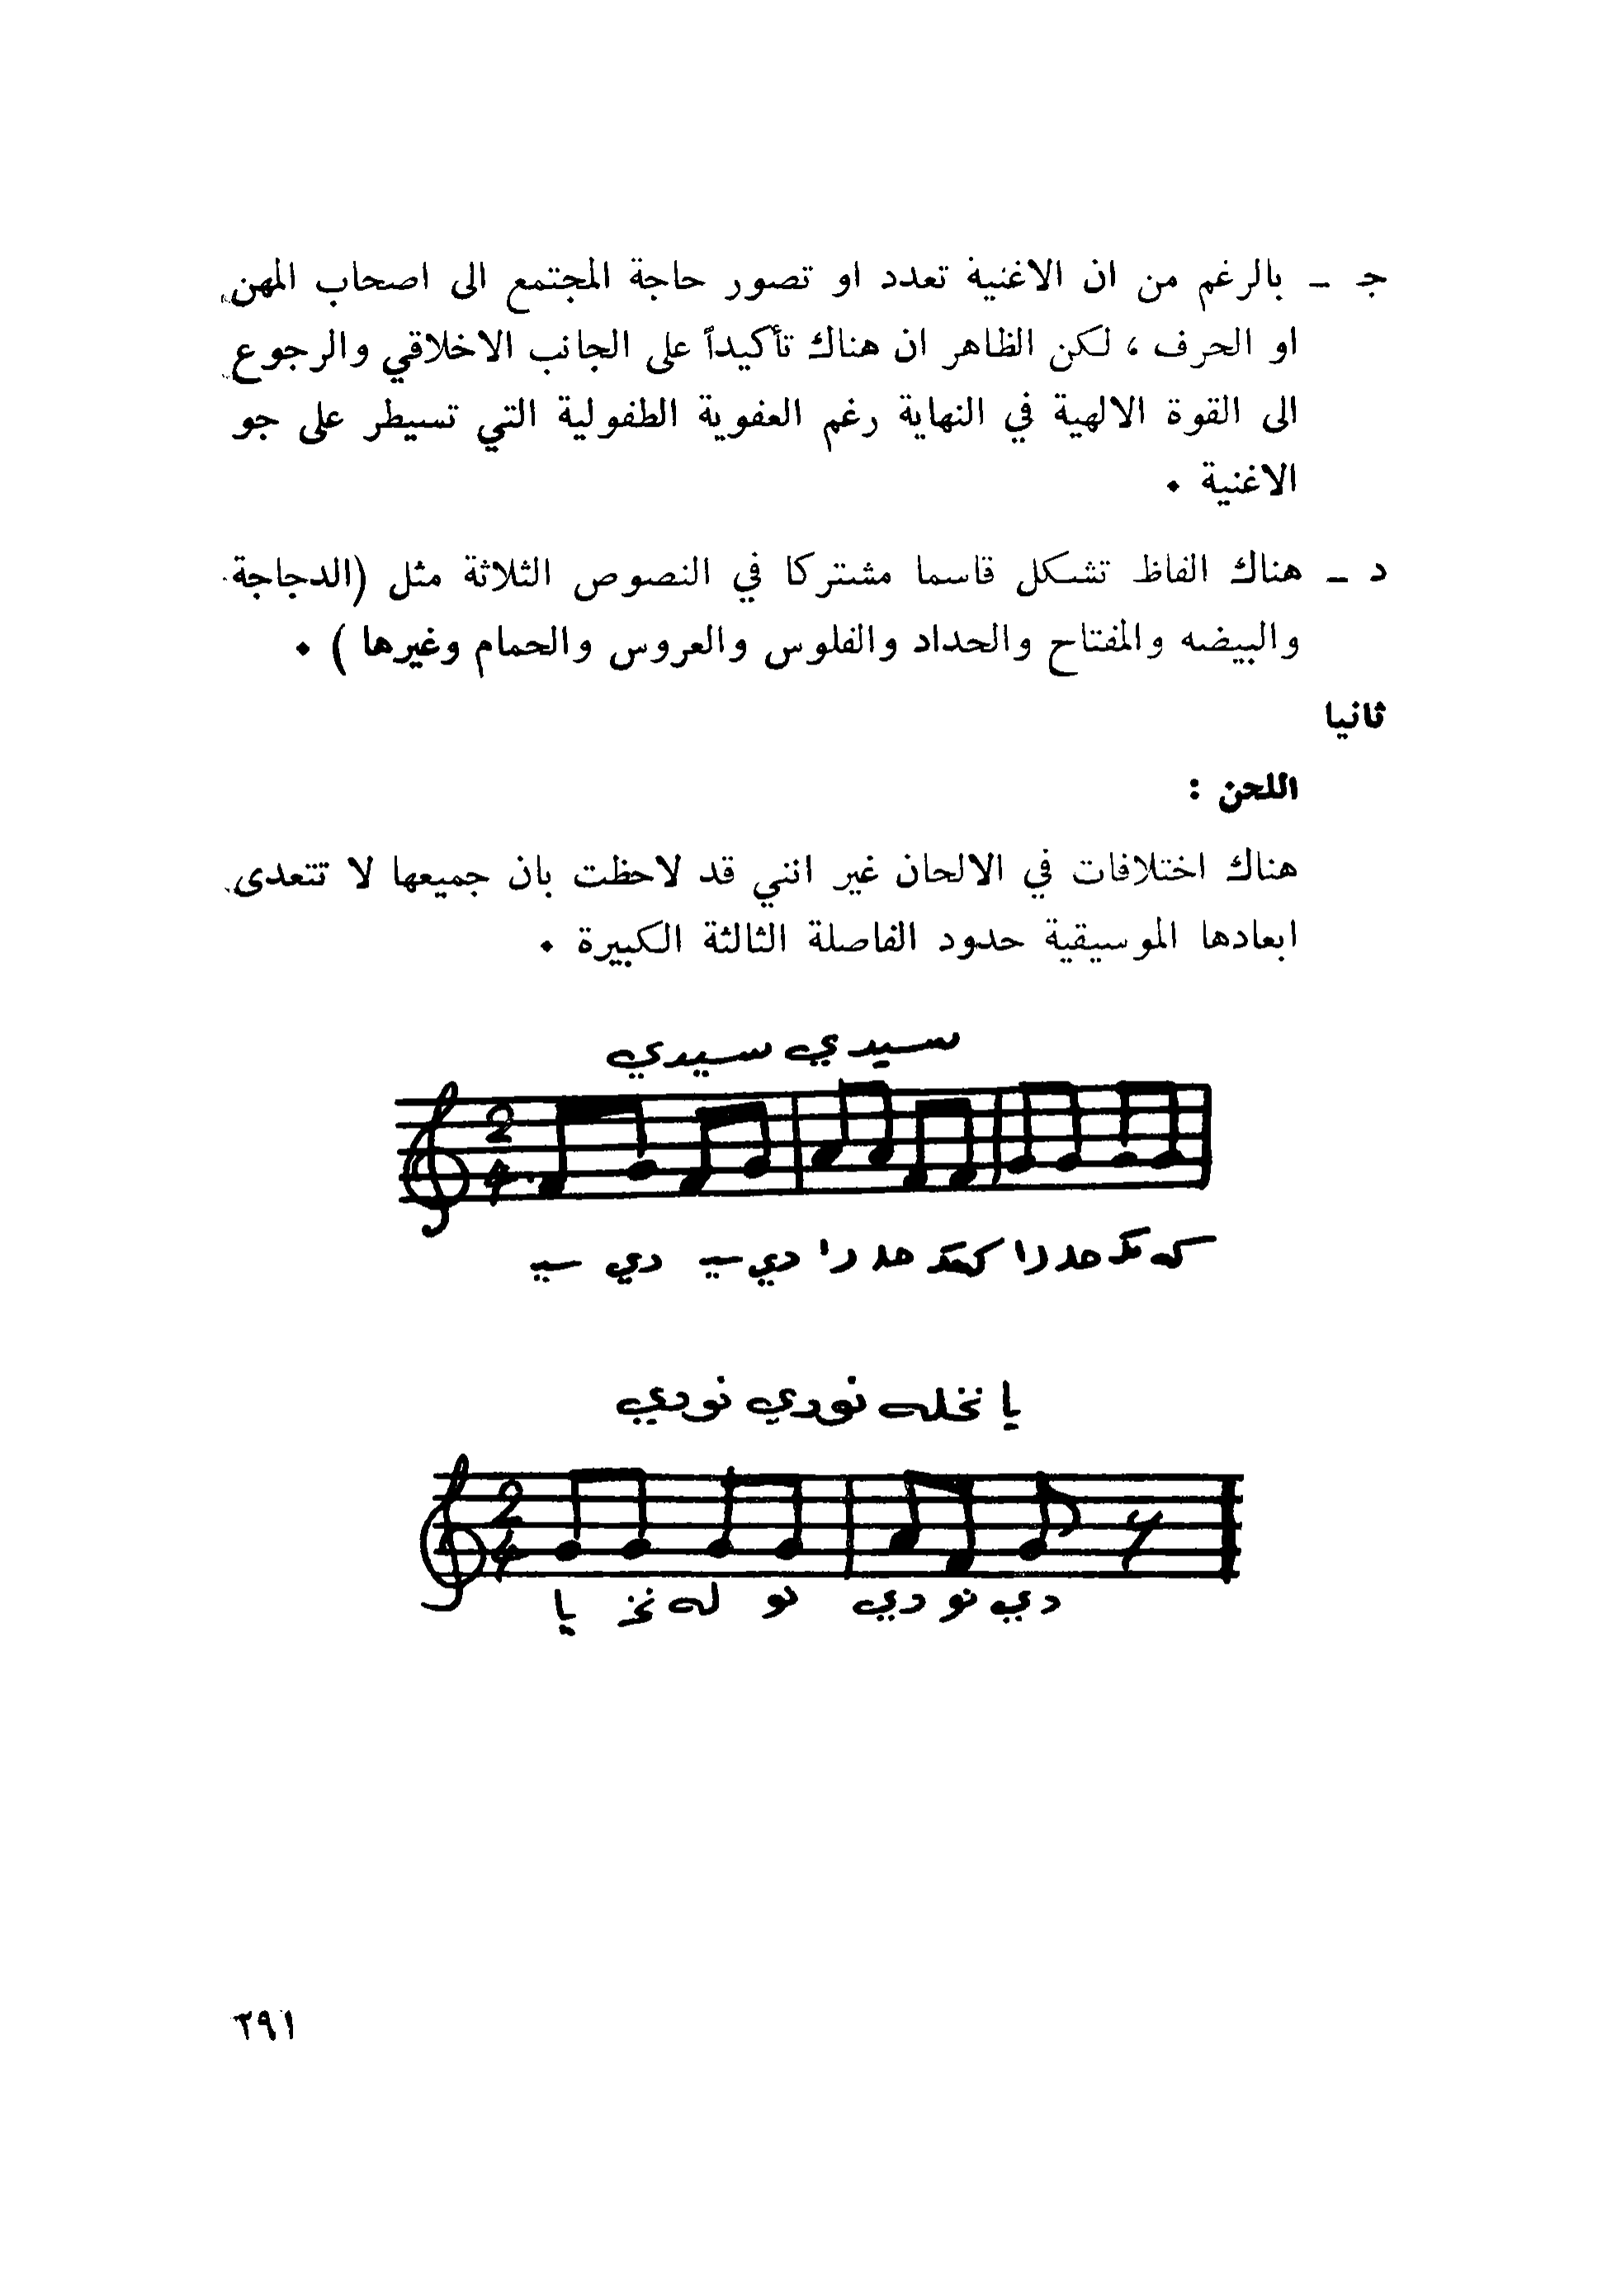 جـ ـ بالرغم من ان الاغنية تعدد او تصور حاجة المجتمع الى اصحاب المهن
او الحرف ، لكن الظاهر ان هناك تأكيداً على الجانب الاخلاقي والرجوع
الى القوة الالهية في النهاية رغم العفوية الطفولية التي تسيطر على جو
الاغنية ٠
د ـ هناك الفاظ تشكل قاسما مشتركا في النصوص الثلاثة مثل (الدجاجة
والبيضه والمفتاح والحداد والفلوس والعروس والحمام وغيرها ) ٠
ثانيا
اللحن :
هناك اختلافات في الالحان غير انني قد لاحظت بان جميعها لا تتعدى
ابعادها الموسيقية حدود الفاصلة الثالثة الكبيرة ٠
سيدي سيدي
2
4
سيـ دي سيـ دي
يا نخله نوري نوري
2
4
يا نخـ له نو
٢٩١